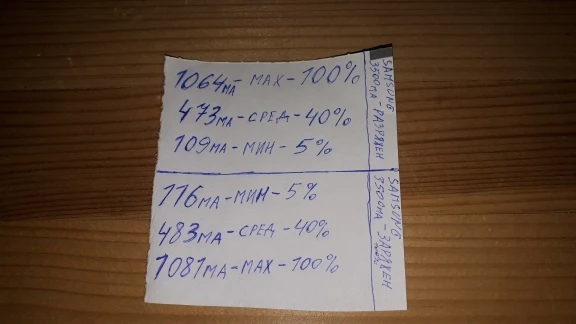 1064мА - MAX - 100%
473мА - СРЕД - 40%
109мА - МИН - 5%
SAMSUNG
3500мА - РАЗРЯЖЕН
116мА - МИН - 5%
483мА - СРЕД - 40%
1081мА - MAX - 100%
SAMSUNG
3500мА - ЗАРЯЖЕН